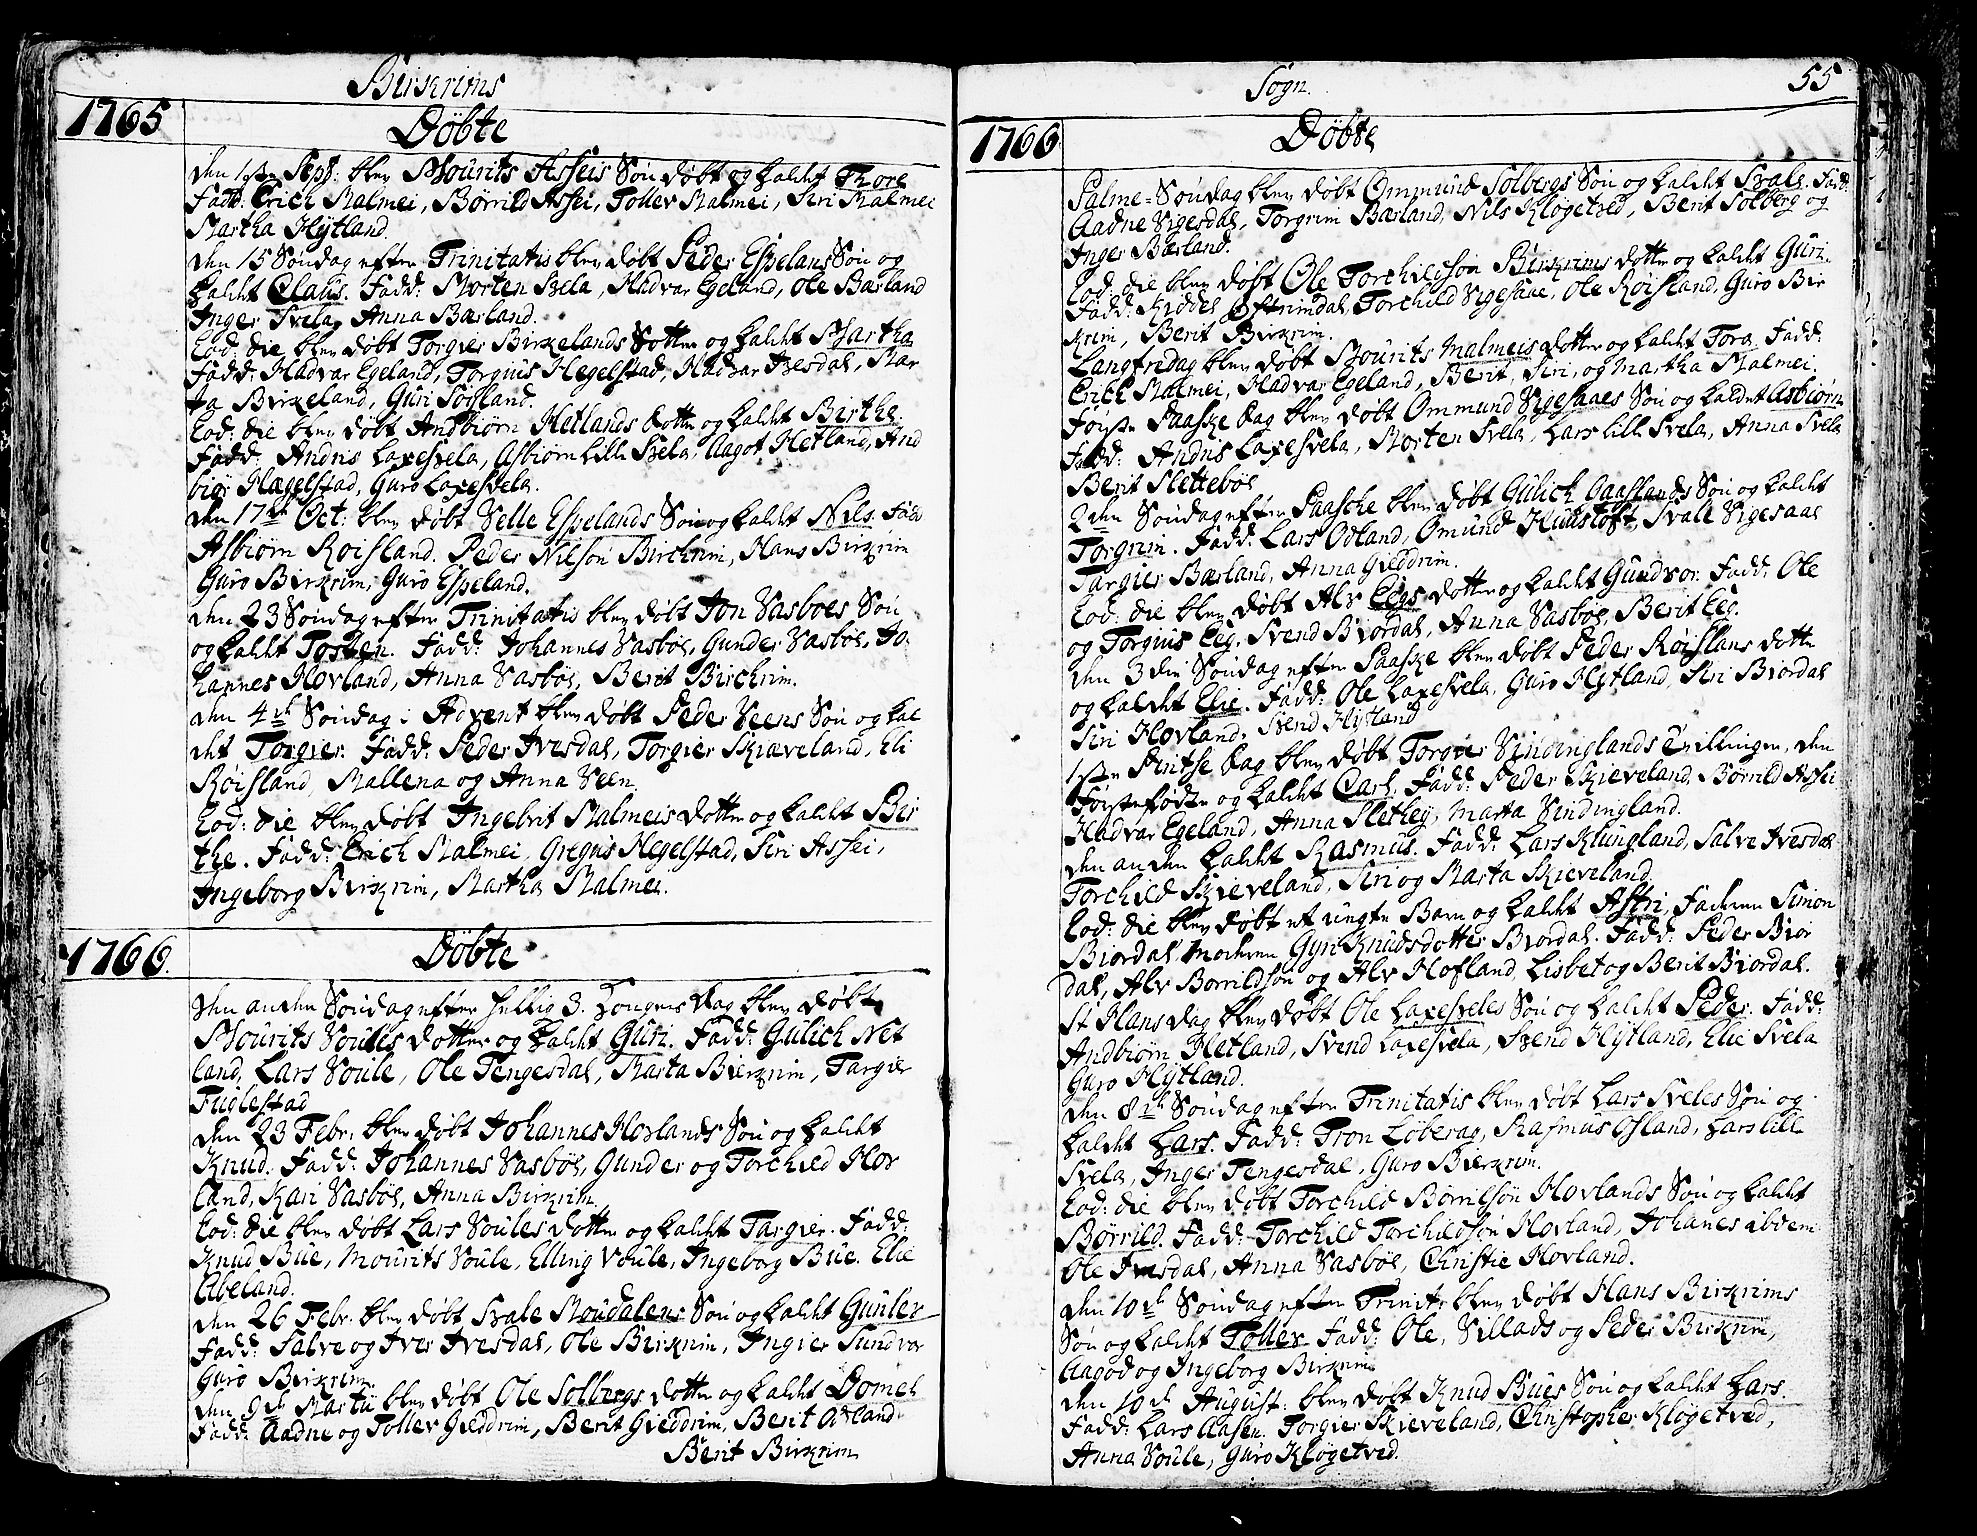 Birkrims
1765
Döbte
den 1ste Sept: blev Mourits Asseis Søn døbt og kaldt Thore
Fadd: Erich Malmei, Börrild Assei, Tollev Malmei, Siri Malmei
Martha Hÿtland.
den 15 Søndag efter Trinitatis blev døbt Peder Espelans Søn og
kaldt Claus. Fadd: Morten Svela, Hadvar Egeland, Ole Bærland
Inger Svela, Anna Bærland.
Eod: die blev døbt Torgier Birkelands Dotter og kaldt Martha
Fadd: Hadvar Egeland, Torguis Hegelstad, Hadvar Ivesdal, Mar
ta Birkeland, Guri
Eod: die blev døbt Andbiørn Hetlands dotter og kaldt Birthe.
Fadd: Andris Laxesvela, Asbiørn Lille Svela, Aagot Hetland, And
biør Hægelstad, Guro Laxesvela.
den 17de Oct: blev døbt Velle Espelands Søn og kaldt Nils. Fadd
Asbiørn Roisland. Peder Nilson Birchrim, Hans Birkrim
Guro Birkrim, Guro Espeland.
den 23 Søndag efter Trinitatis blev døbt Jon Vasboes Søn
og kaldt Tosten. Fadd: Johannes Vasbøe, Gunder Vasbøe, Jo-
hannes Hovland, Anna Vasbøe, Berit Birchrim.
den 4de Søndag i Advent blev døbt Peder Veens Søn og kal
det Torgier. Fadd: Peder Ivesdal, Torgier Skiæveland, Eli
Røisland, Mallena og Anna Veen.
Eod: die blev døbt Ingebrit Malmeis dotter og kaldt Bir
the. Fadd: Erich Malmei, Gregus Hegelstad, Siri Assei,
Ingeborg Birkrim, Martha Malmei.
1766.
Döbte
den anden Søndag efter hellig 3. Kongers Dag blev døbt
Mourits Voules dotter og kaldt Guri. Fadd: Gulich Net
land, Lars Voule, Ole Tengesdal, Marta Bierkrim, Targier
Fuglestad
den 23 Febr. blev døbt Johannes Hovlands Søn og kaldt
Knud. Fadd: Johannes Vasbøe, Gunder og Torchild Hov
land, Kari Vasbøe, Anna Birkrim.
Eod: die blev døbt Lars Voules dotter og kaldt Targier. Fadd:
Knud Bue, Mourits Voule, Elling Voule, Ingeborg Bue. Elie
Abeland.
den 26 Febr. blev døbt Svale Moudalens Søn og kaldt Gunler
Fadd: Salve og Iver Ivesdal, Ole Birkrim, Ingier Sundvor
Guro Birkrim.
den 9de Martii blev døbt Ole Solbergs dotter og kaldt Dometh
Fadd: Aadne og Tollev Gieddrim, Berit Gieddrim, Berit
Berit Birkrim
Sogn.
55
1766
Döbte
Palme-Søndag blev døbt Ommund Solbergs Søn og kaldt Svale. Fadd:
Aadne Vigesdal, Torgrim Bærland, Nils Kløgetved, Berit Solberg og
Inger Bærland.
Eod: die blev døbt Ole Torchildson Birkrims dotter og kaldt Guri.
Fadd: Kiddel Eftrimdal, Torchild Vigesaae, Ole Roisland, Guro Bir
krim, Berit Birkrim.
Langfredag blev døbt Mourits Malmeis dotter og kaldt Tora. Fadd:
Erich Malmei, Hadvar Egeland, Berit, Siri, og Martha Malmei.
Første Paaske Dag blev døbt Ommund Vigesaaes Søn og kaldet Asbiørn
Fadd: Andris Laxesvela, Morten Svela, Lars lille Svela, Anna Svela
Berit Slettebøe
2den Søndag efter Paaske blev døbt Gulich Aaslands Søn og kaldt
Torgrim. Fadd: Lars Odland, Omund Svale Vigesaae
Targier Bærland, Anna Gieddrim.
Eod: die blev døbt Alv Eegs dotter og kaldt Gundvor. Fadd: Ole
og Torguis Eeg. Svend Biordal, Anna Vasbøe, Berit Eeg.
den 3die Søndag efter Paaske blev døbt Peder Røislans dotter
og kaldt Elie. Fadd: Ole Laxesvela, Guro Hÿtland, Siri Biordal
Siri Hovland, Svend Hÿtland
1ste Pintse Dag blev døbt Torgier Vindinglands Tvillinger, den
førstefødte og kaldt Carl. Fadd: Peder Skieveland, Börrild Assei
Hadvar Egeland, Anna Slethey, Marta Vindingland.
den anden kaldt Rasmus. Fadd: Lars Klungland, Salve Ivesdal
Torchild Skieveland, Siri og Marta Skieveland.
Eod: die blev døbt et uægte Barn og kaldt Astri, Faderen Simon
Biordal, Moderen Gyri Knudsdotter Biordal. Fadd: Peder Bior
dal, Alv Borrildson og Alv Hofland, Lisbet og Berit Biordal.
St Hans dag blev døbt Ole Laxesveles Søn og kaldt Peder. Fadd:
Andbiørn Hetland, Svend Laxesvela, Svend Hÿtland, Elie Svela
Guro Hÿtland.
den 8de Søndag efter Trinitatis blev døbt Lars Sveles Søn og
kaldt Lars. Fadd: Tron Løberag, Rasmus Osland, Lars lille
Svela, Inger Tengesdal, Guro Bierkrim.
Eod: die blev døbt Torchild Börrilsøn Hovlands Søn og kaldt
Börrild. Fadd: Torchild Torchildsøn Hovland, Johanes ibdem
Ole Ivesdal, Anna Vasbøe, Christie Hovland.
den 10de Søndag efter Trinit: blev døbt Hans Birkrims
Søn og kaldt Tollev. Fadd: Ole, Villads og Peder Birkrim,
Aagod og Ingeborg Birkrim
den 10de August: blev døbt Knud Bues Søn og kaldt Lars.
Fadd: Lars Aasen. Torgier Skieveland, Christopher Kløgetved,
Anna Voule, Guro Kløgetved.